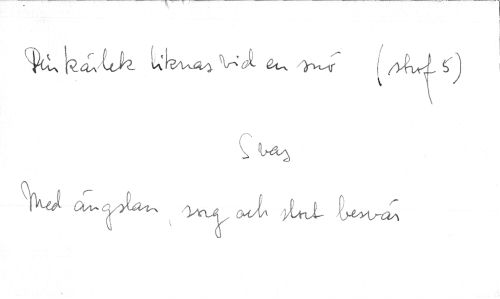 Din kärlek liknas vid en snö (strof 5)
Svar
Med ängslan, sorg och stort besvär